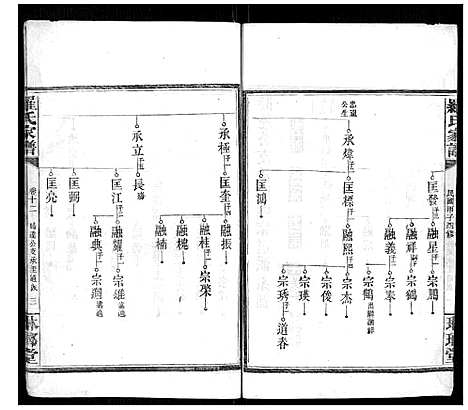 羅氏家譜
民國甲子四修
忠處公生
承煒
匡發
融星
宗鵬
融輝
宗鶴
融義
宗泰
宗鶴
匡標
融熙
宗杰
宗俊
宗瑛
宗琇
道春
匡鴻
承極
匡奎
融振
融桂
宗榮
融槐
融楠
承立
長
匡江
融耀
宗雄
融典
宗週
匡弼
匡亮
羅氏家譜
卷十二
三